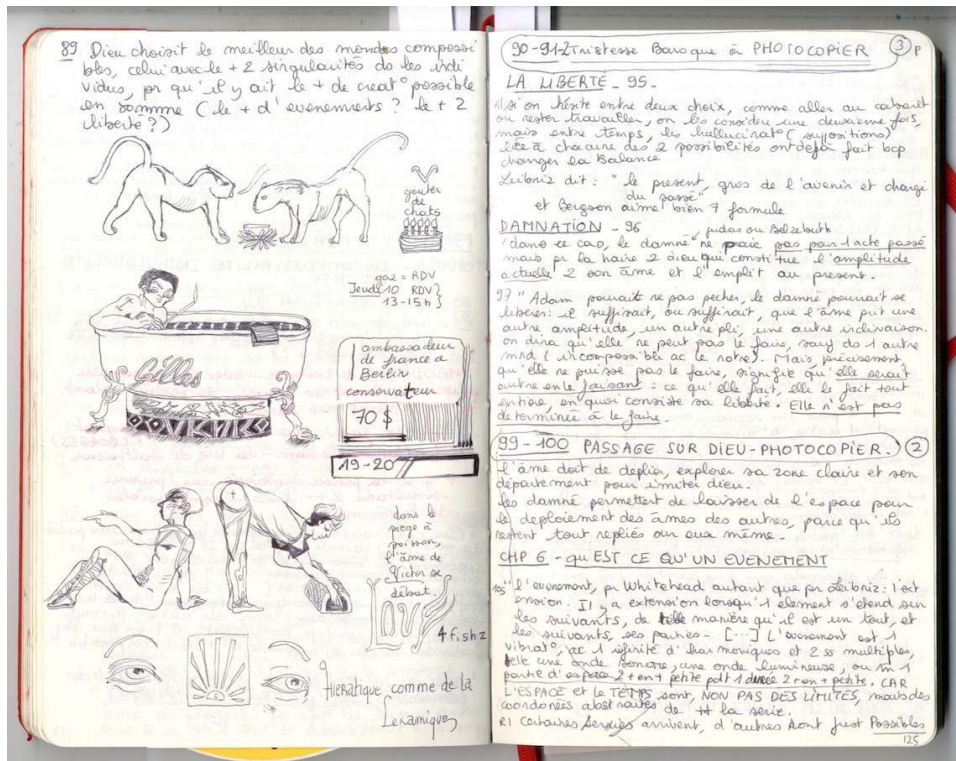 89 Dieu choisit le meilleur des mondes compossi
bles, celui avec le + 2 singularités ds les indi
vidus, pr qu'il y ait le + de creat° possible
en somme (le + d'evenements? le + 2
liberté?)
gouter
de
chats
gaz = RDV
Jeudi 10 RDV}
13-15h}
Gilles
ambassadeur
de france a
Berlin
conservateur
70 $
19-20
dans le
piege à
poisson,
l'âme de
Victor se
débat.
Love
4 fish z
Hiératique comme de la
Ceramique
90-91-2 Tristesse Baroque à PHOTOCOPIER 3 P
LA LIBERTÉ - 95.
si on hésite entre deux choix, comme aller au cabaret
ou rester travailler, on les considere une deuxieme fois,
mais entre temps, les hallucinat° (suppositions)
liée à chacune des 2 possibilités ont déjà fait bcp
changer la Balance
Leibniz dit: "le present, gros de l'avenir et chargé
du passé"
et Bergson aime bien 7 formule
DAMNATION - 96
judas ou Belzebuth
"dans ce cas, le damné ne paie pas pour 1 acte passé
mais pr la haine 2 dieu qui constitue l'amplitude
actuelle 2 son âme et l'emplit au present.
97 "Adam pouvait ne pas pecher, le damné pouvait se
liberer: il suffirait, ou suffirait, que l'âme prit une
autre amplitude, un autre pli, une autre inclinaison.
on dira qu'elle ne peut pas le faire, sauf ds 1 autre
mnd (incompossible ac le notre). Mais, précisement,
qu'elle ne puisse pas le faire, signifie qu'elle serait
autre en le faisant: ce qu'elle fait, elle le fait tout
entière, en quoi consiste sa liberté. Elle n'est pas
determinée à le faire.
99-100 PASSAGE SUR DIEU-PHOTOCOPIER. 2
l'âme doit de deplier, explorer sa zone claire et son
département pour imiter dieu.
les damné permettent de laisser de l'espace pour
le deploiement des âmes des autres, parce qu'ils
restent tout repliés sur eux même.
CHP 6 - qu'EST CE QU'UN EVENEMENT
105 "l'evenement, pr Whitehead autant que pr Leibniz: 1 ext
ension. Il y a extension lorsqu'1 element s'etend sur
les suivants, de telle manière qu'il est un tout, et
les suivants, ses parties - [...] L'evenement est 1
vibrat°, ac 1 infinité d'harmoniques et 2 ss multiples,
telle une onde sonore, une onde lumineuse, ou m 1
partie d'espace 2 + en + petite pdt 1 durée 2 + en + petite. CAR
L'ESPACE et le TEMPS sont, NON PAS DES LIMITES, mais des
coordonées abstraites de tt la serie.
R1 Certaines series arrivent, d'autres sont just Possibles
125